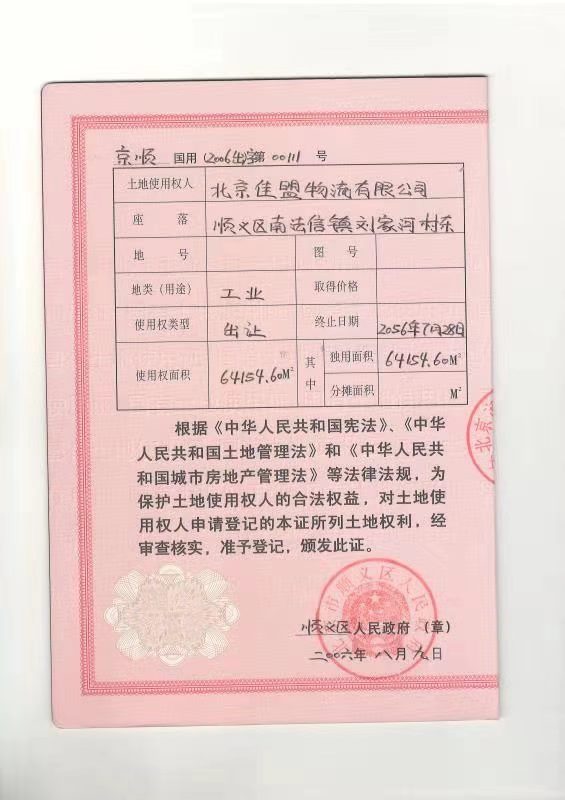 京顺 国用(2006出)字第 00111 号
土地使用权人 北京佳盟物流有限公司
座 落 顺义区南法信镇刘家河村东
地 号 图 号
地类（用途） 工业 取得价格
使用权类型 出让 终止日期 2056年7月28日
使用权面积 64154.60M² 其中 独用面积 64154.60M²
分摊面积 M²
根据《中华人民共和国宪法》、《中华
人民共和国土地管理法》和《中华人民共
和国城市房地产管理法》等法律法规，为
保护土地使用权人的合法权益，对土地使
用权人申请登记的本证所列土地权利，经
审查核实，准予登记，颁发此证。
市顺义区人民
顺义区人民政府（章）
二00六年 八月 九日
北京